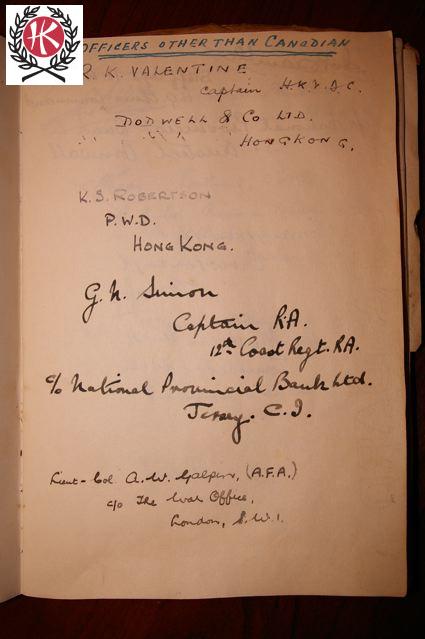 HK
OFFICERS OTHER THAN CANADIAN
R. K. VALENTINE
Captain H.K.V.D.C.
DODWELL & CO. LTD.
HONGKONG.
K. S. ROBERTSON
P.W.D.
HONG KONG.
G. N. Simon
Captain RA.
12th Coast Regt. RA.
c/o National Provincial Bank Ltd.
Jersey. C.I.
Lieut-Col A.W. Galpin, (A.F.A.)
c/o The War Office,
London, S.W.1.